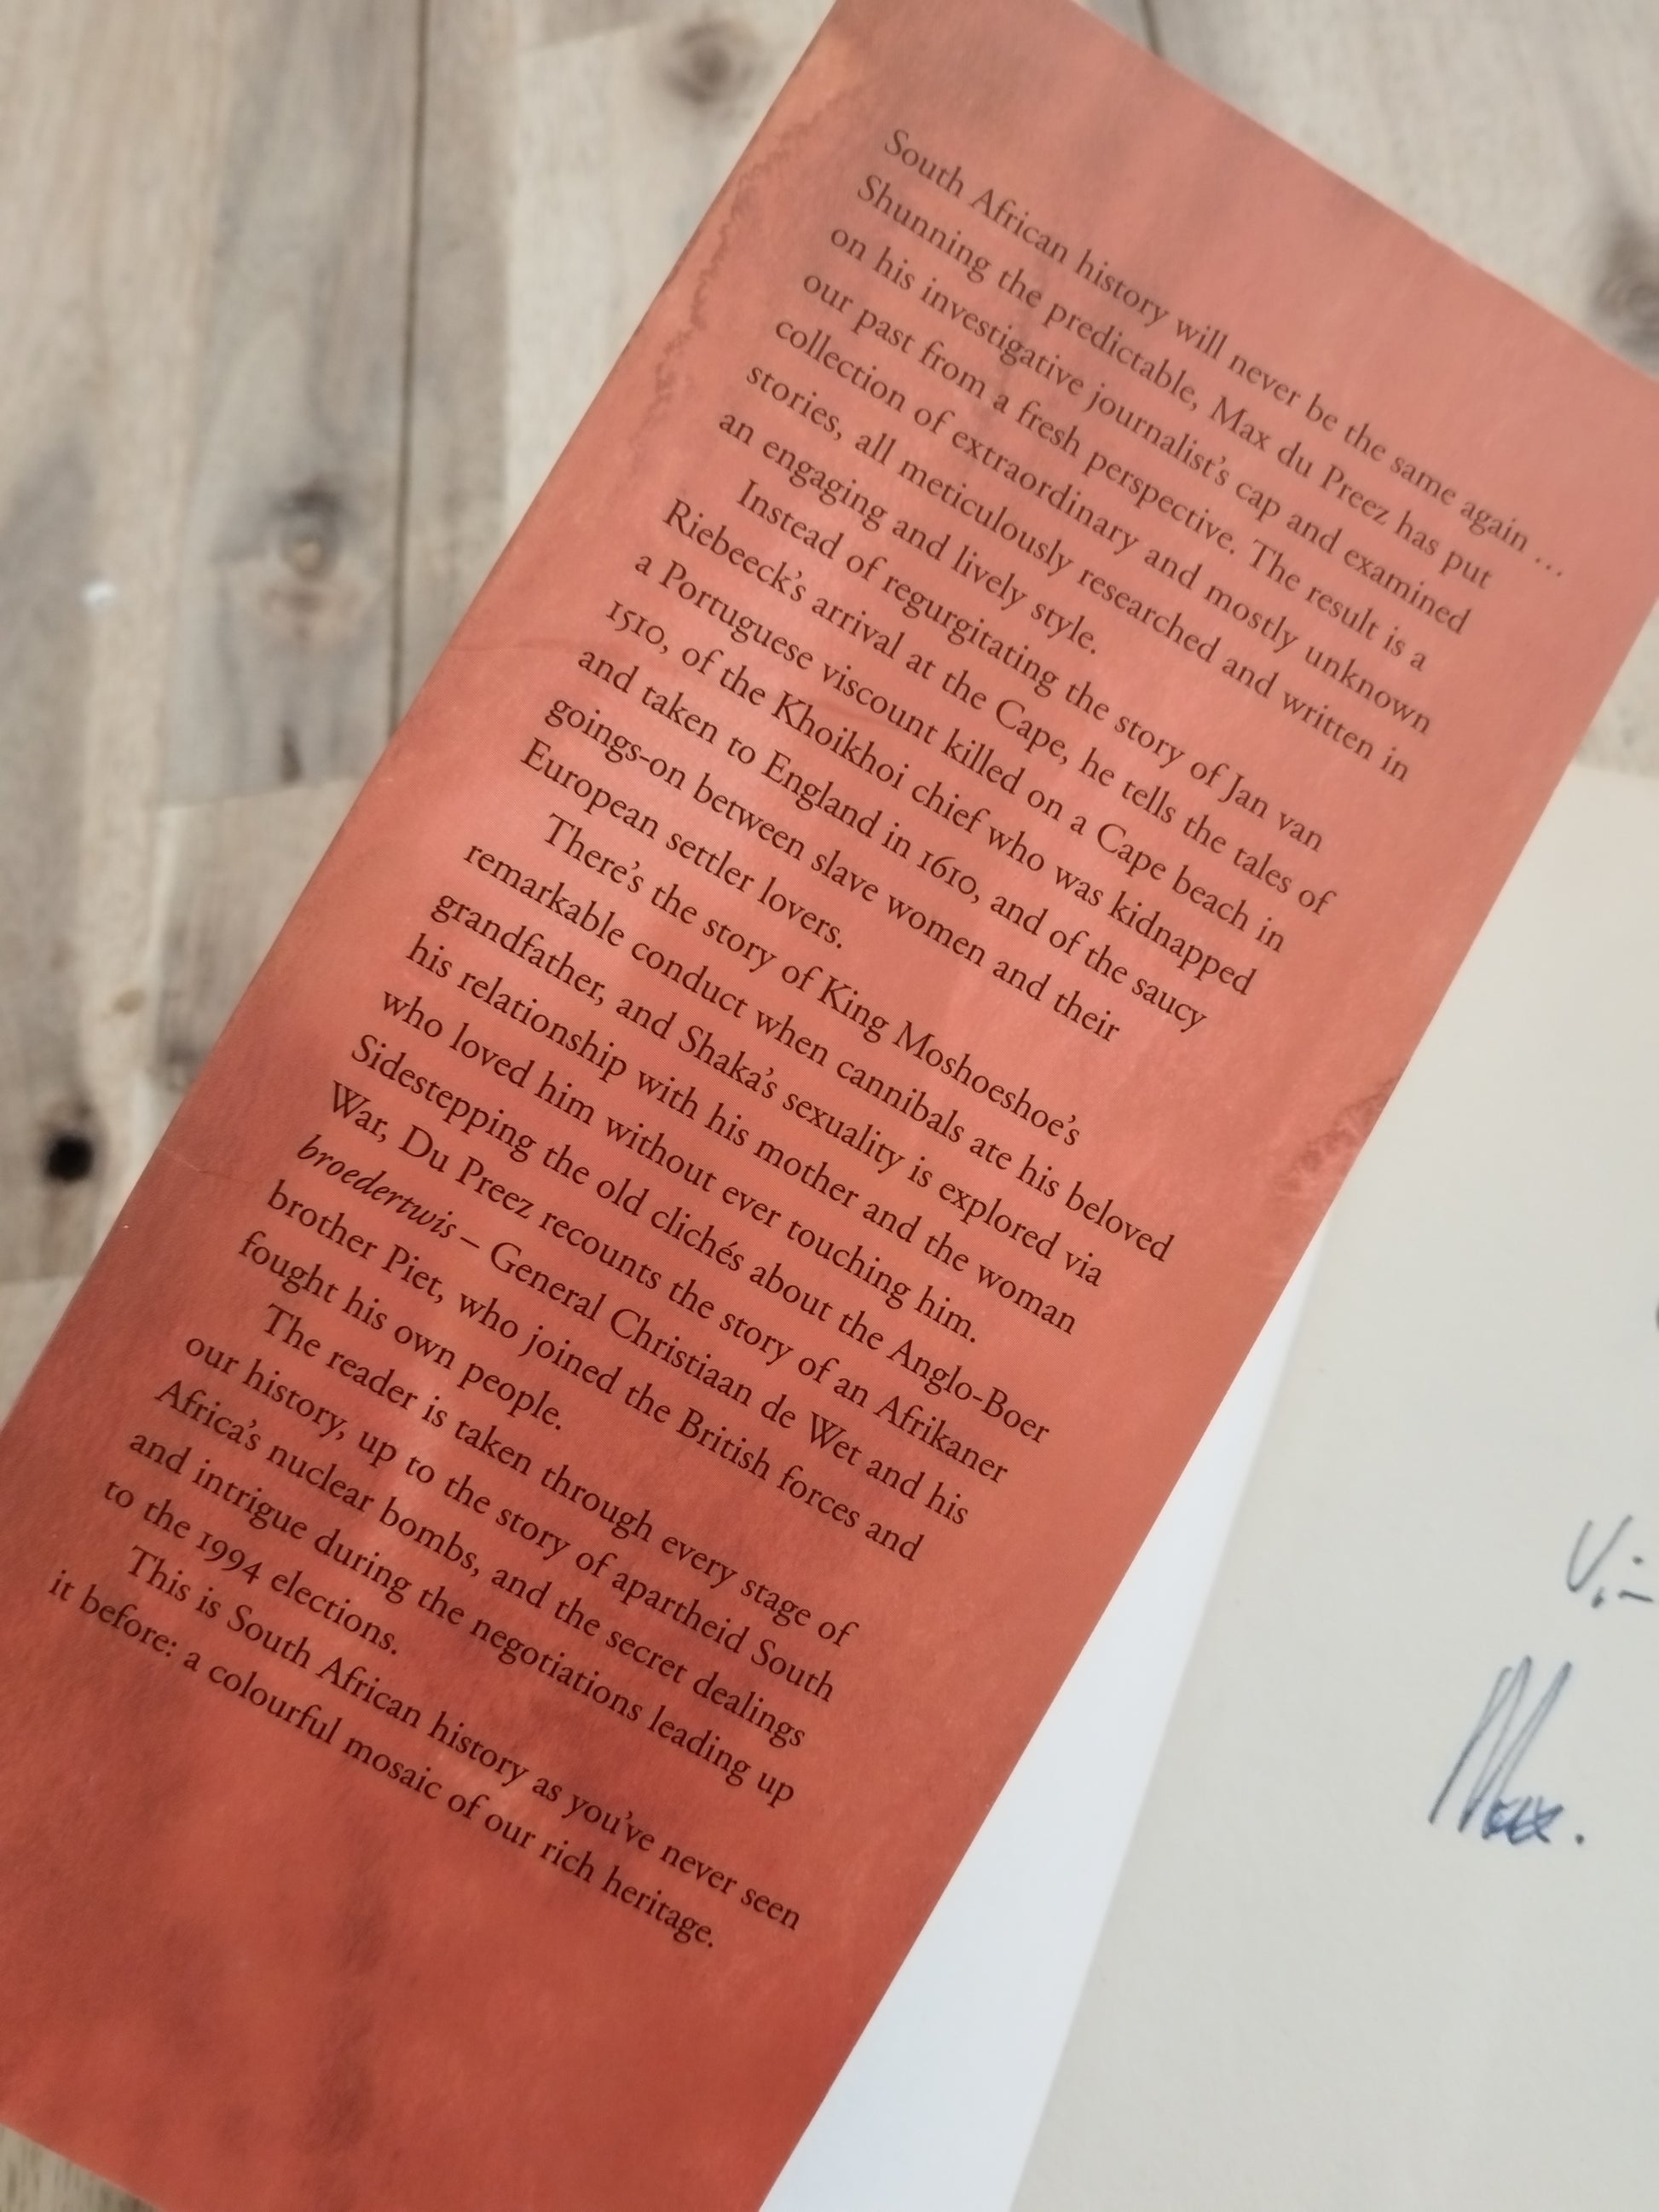 South African history will never be the same again ...
Shunning the predictable, Max du Preez has put
on his investigative journalist's cap and examined
our past from a fresh perspective. The result is a
collection of extraordinary and mostly unknown
stories, all meticulously researched and written in
an engaging and lively style.
Instead of regurgitating the story of Jan van
Riebeeck's arrival at the Cape, he tells the tales of
a Portuguese viscount killed on a Cape beach in
1510, of the Khoikhoi chief who was kidnapped
and taken to England in 1610, and of the saucy
goings-on between slave women and their
European settler lovers.
There's the story of King Moshoeshoe's
remarkable conduct when cannibals ate his beloved
grandfather, and Shaka's sexuality is explored via
his relationship with his mother and the woman
who loved him without ever touching him.
Sidestepping the old clichés about the Anglo-Boer
War, Du Preez recounts the story of an Afrikaner
broedertwis – General Christiaan de Wet and his
brother Piet, who joined the British forces and
fought his own people.
The reader is taken through every stage of
our history, up to the story of apartheid South
Africa's nuclear bombs, and the secret dealings
and intrigue during the negotiations leading up
to the 1994 elections.
This is South African history as you've never seen
it before: a colourful mosaic of our rich heritage.
Max.